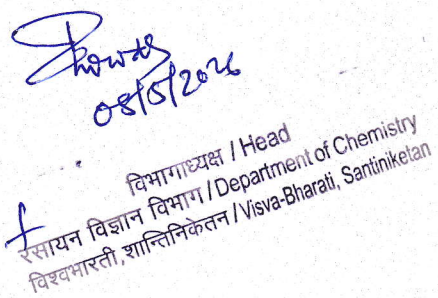 08/5/2026
विभागाध्यक्ष / Head
रसायन विज्ञान विभाग / Department of Chemistry
विश्वभारती, शान्तिनिकेतन / Visva-Bharati, Santiniketan